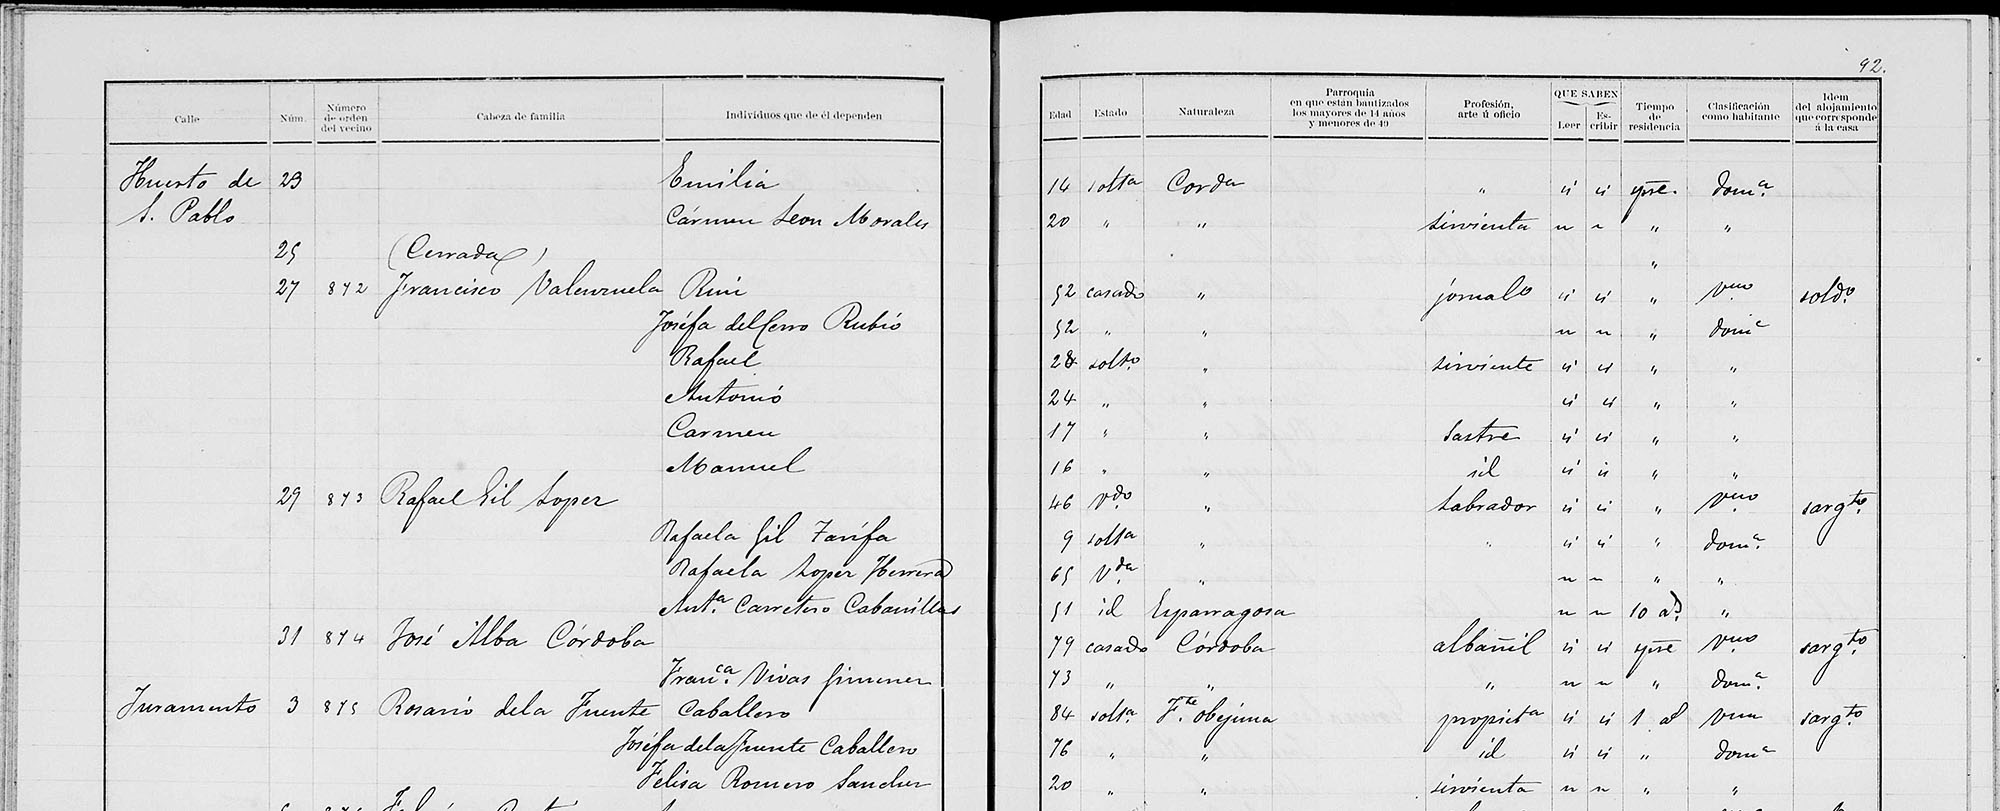 92.
Calle Núm. Número de orden del vecino Cabeza de familia Individuos que de él dependen Edad Estado Naturaleza Parroquia en que están bautizados los mayores de 14 años y menores de 49 Profesión, arte ú oficio QUE SABEN Leer Escribir Tiempo de residencia Clasificación como habitante Idem del alojamiento que corresponde á la casa
Huerto de 23 Emilia 14 solta Corda " si si spre. doma.
S. Pablo Cármen Leon Morales 20 " " sirvienta n n " "
25 (Cerrada) "
27 872 Francisco Valenzuela Ruiz 52 casado " jornalo si si " Vno. soldo.
Joséfa del Cerro Rubio 52 " " n n " doma
Rafael 28 solto. " sirviente si si " "
Antonio 24 " " si si " "
Carmen 17 " " sastre si si " "
Manuel 16 " " id si si " "
29 873 Rafael Gil Lopez 46 Vdo. " Labrador si si " Vno. sargto.
Rafaela Gil Tarifa 9 solta " " si si " doma.
Rafaela Lopez Herrera 65 Vda. " n n " "
Anta. Carretero Cabanillas 51 id Esparragosa n n 10 as "
31 874 José Alba Córdoba 79 casado Córdoba albañil si si spre Vno. sargto.
Franca. Vivas Gimenez 73 " " " n n " doma.
Juramento 3 875 Rosario de la Fuente Caballero 84 solta. Fte. obejuna propieta si si 1 a Vna sargto.
Joséfa de la Fuente Caballero 76 " " id si si " doma
Felisa Romero Sanchez 20 " " sirvienta n n " "